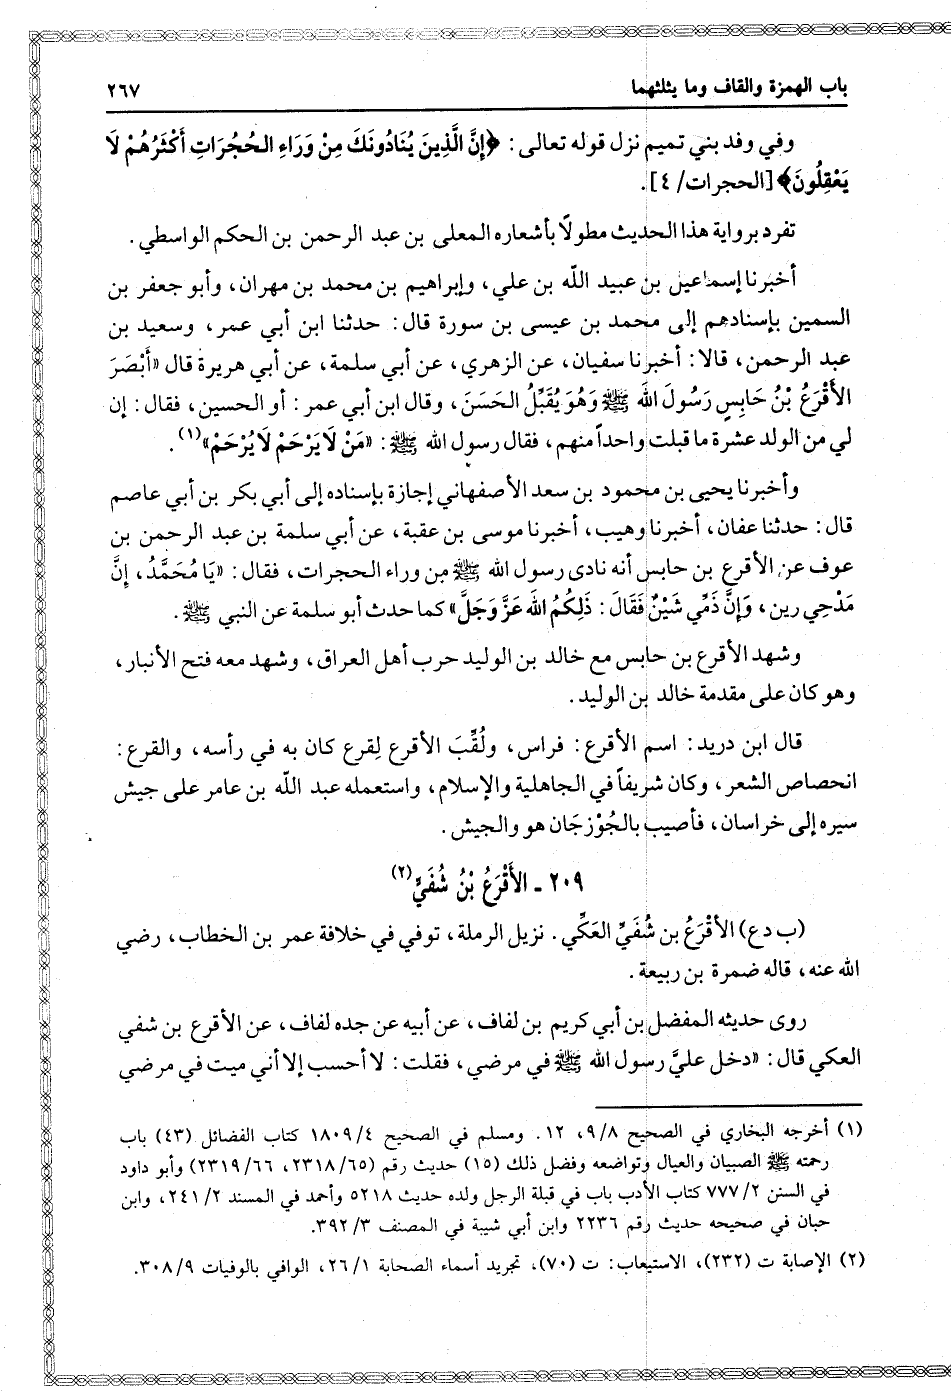 باب الهمزة والقاف وما يثلثهما ٢٦٧
وفي وفد بني تميم نزل قوله تعالى: ﴿إِنَّ الَّذِينَ يُنَادُونَكَ مِنْ وَرَاءِ الحُجُرَاتِ أَكْثَرُهُمْ لَا
يَعْقِلُونَ﴾ [الحجرات/ ٤].
تفرد برواية هذا الحديث مطولاً بأشعاره المعلى بن عبد الرحمن بن الحكم الواسطي.
أخبرنا إسماعيل بن عبيد اللّه بن علي، وإبراهيم بن محمد بن مهران، وأبو جعفر بن
السمين بإسنادهم إلى محمد بن عيسى بن سورة قال: حدثنا ابن أبي عمر، وسعيد بن
عبد الرحمن، قالا: أخبرنا سفيان، عن الزهري، عن أبي سلمة، عن أبي هريرة قال «أَبْصَرَ
الأَقْرَعُ بْنُ حَابِسٍ رَسُولَ اللهِ ﷺ وَهُوَ يُقَبِّلُ الحَسَنَ، وقال ابن أبي عمر: أو الحسين، فقال: إن
لي من الولد عشرة ما قبلت واحداً منهم، فقال رسول الله ﷺ: «مَنْ لَا يَرْحَمْ لَا يُرْحَمْ»(١).
وأخبرنا يحيى بن محمود بن سعد الأصفهاني إجازة بإسناده إلى أبي بكر بن أبي عاصم
قال: حدثنا عفان، أخبرنا وهيب، أخبرنا موسى بن عقبة، عن أبي سلمة بن عبد الرحمن بن
عوف عن الأقرع بن حابس أنه نادى رسول الله ﷺ من وراء الحجرات، فقال: «يَا مُحَمَّدُ، إِنَّ
مَدْحِي رين، وَإِنَّ ذَمِّي شَيْنٌ فَقَالَ: ذَلِكُمُ اللهُ عَزَّ وَجَلَّ» كما حدث أبو سلمة عن النبي ﷺ.
وشهد الأقرع بن حابس مع خالد بن الوليد حرب أهل العراق، وشهد معه فتح الأنبار،
وهو كان على مقدمة خالد بن الوليد.
قال ابن دريد: اسم الأقرع: فراس، ولُقِّبَ الأقرع لِقرع كان به في رأسه، والقرع:
انحصاص الشعر، وكان شريفاً في الجاهلية والإسلام، واستعمله عبد اللّه بن عامر على جيش
سيره إلى خراسان، فأصيب بالجُوْزجَان هو والجيش.
٢٠٩ ـ الأَقْرَعُ بْنُ شُفَيٍّ(٢)
(ب دع) الأقْرَعُ بن شُفَيِّ العَكِّي. نزيل الرملة، توفي في خلافة عمر بن الخطاب، رضي
الله عنه، قاله ضمرة بن ربيعة.
روى حديثه المفضل بن أبي كريم بن لفاف، عن أبيه عن جده لفاف، عن الأقرع بن شفي
العكي قال: «دخل عليَّ رسول الله ﷺ في مرضي، فقلت: لا أحسب إلا أني ميت في مرضي
(١) أخرجه البخاري في الصحيح ٩/٨، ١٢. ومسلم في الصحيح ١٨٠٩/٤ كتاب الفضائل (٤٣) باب
رحمته ﷺ الصبيان والعيال وتواضعه وفضل ذلك (١٥) حديث رقم (٢٣١٨/٦٥، ٢٣١٩/٦٦) وأبو داود
في السنن ٧٧٧/٢ كتاب الأدب باب في قبلة الرجل ولده حديث ٥٢١٨ وأحمد في المسند ٢٤١/٢، وابن
حبان في صحيحه حديث رقم ٢٢٣٦ وابن أبي شيبة في المصنف ٣٩٢/٣.
(٢) الإصابة ت (٢٣٢)، الاستيعاب: ت (٧٠)، تجريد أسماء الصحابة ٢٦/١، الوافي بالوفيات ٣٠٨/٩.